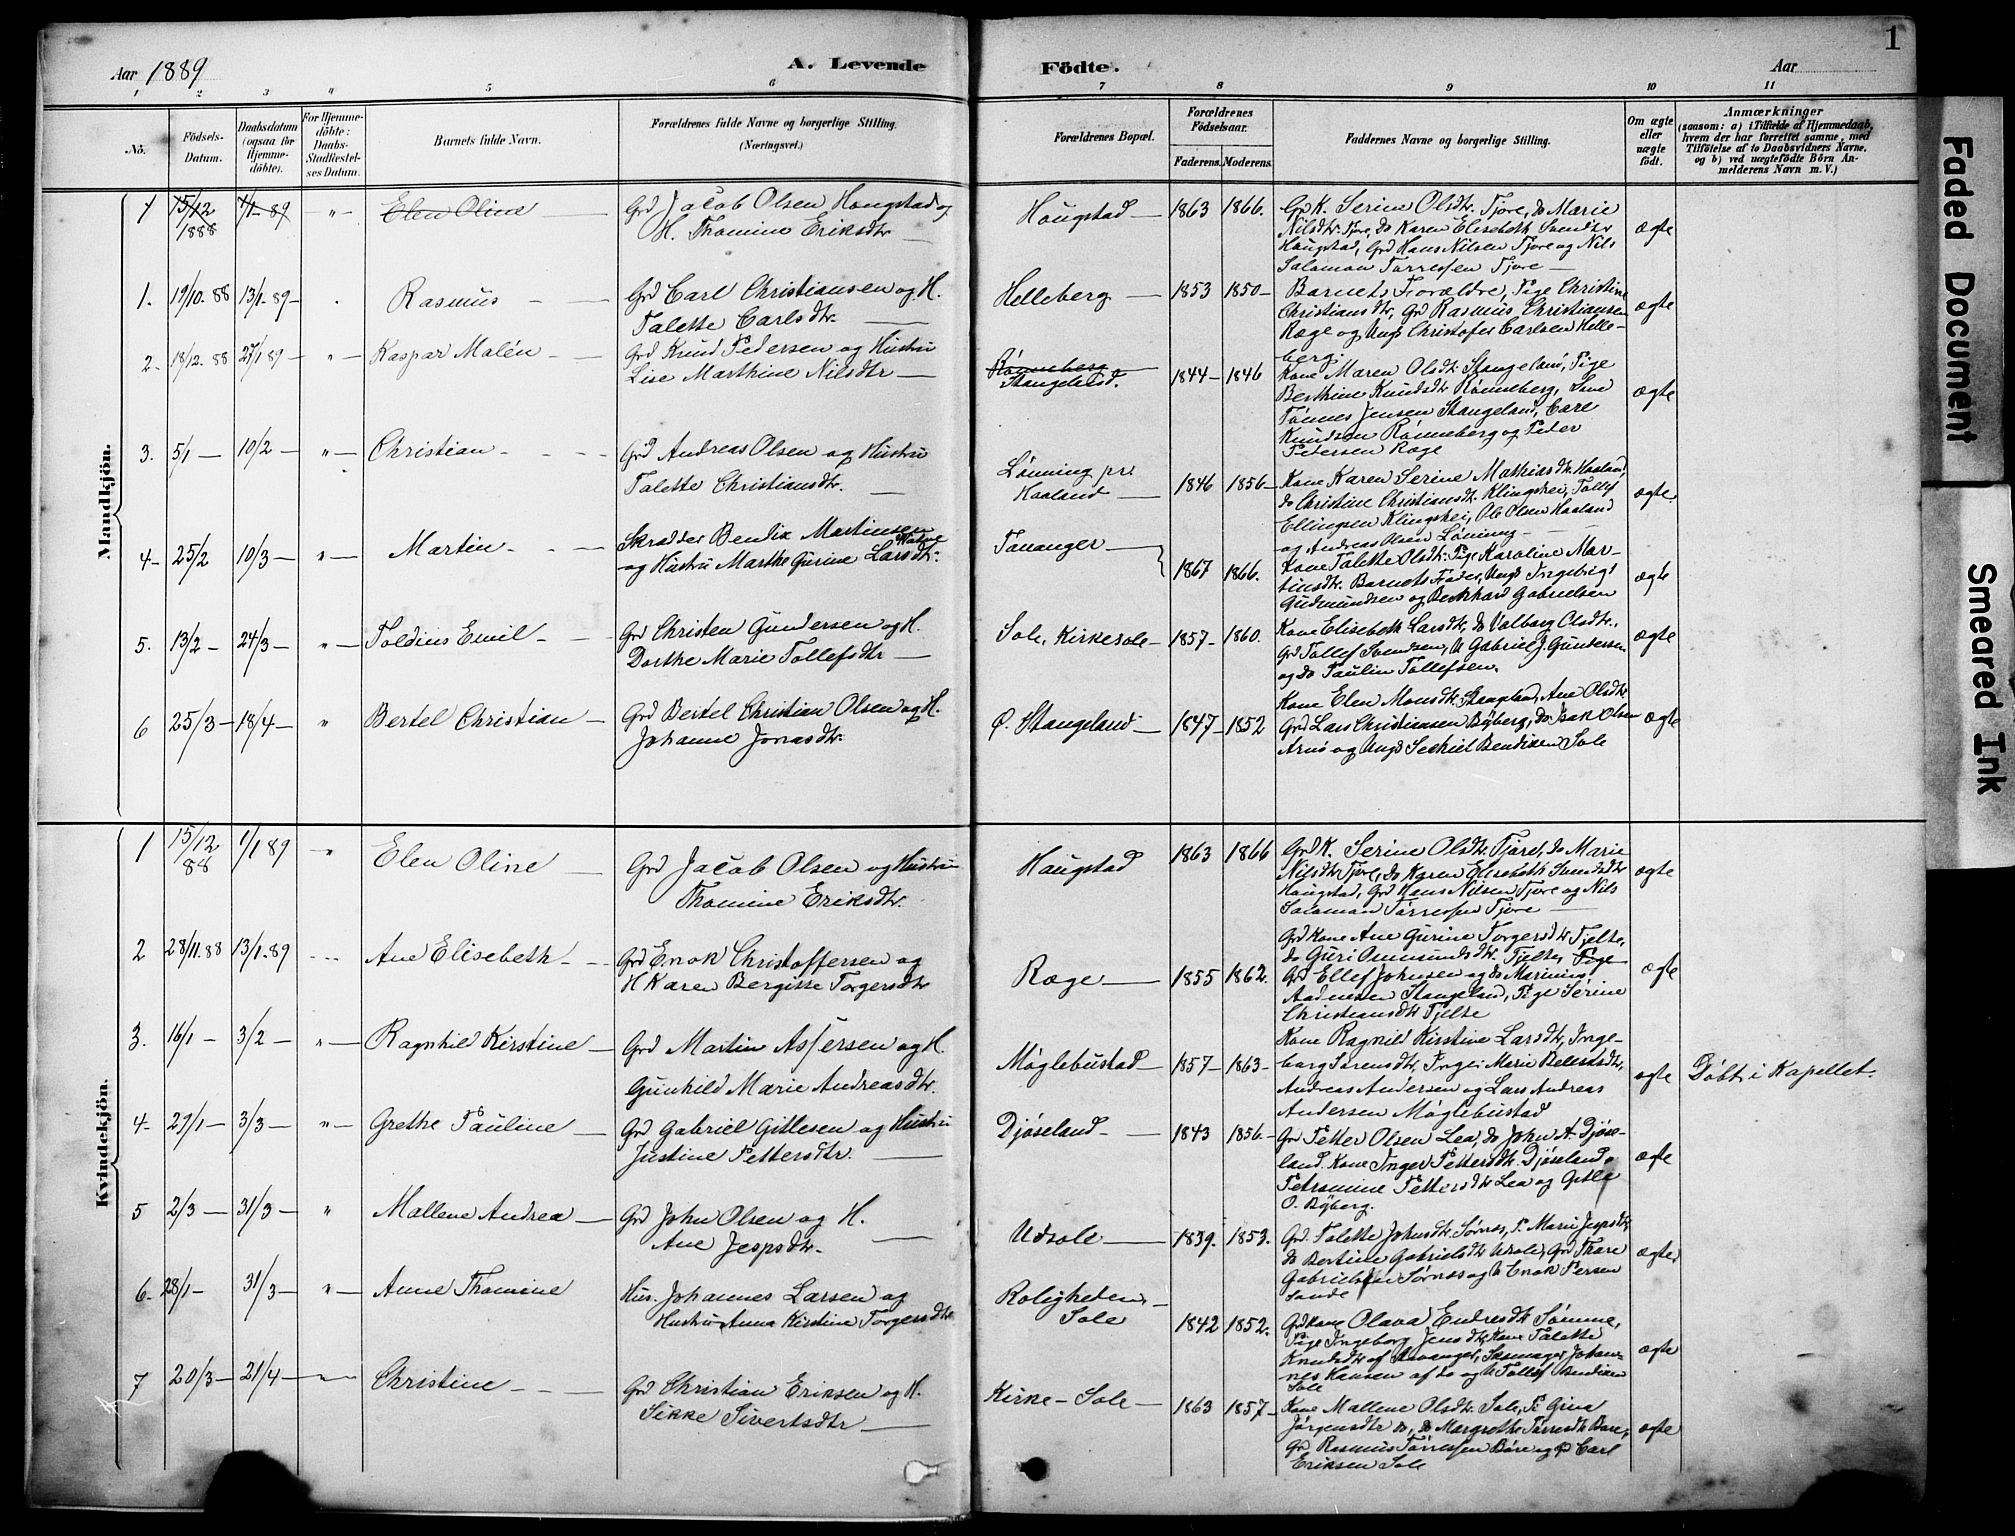 Aar 1889
A. Levende Födte.
Aar
1
1 2 3 " 5 6 7 8 9 10 11
No.
Födsels-Datum.
Daabsdatum (ogsaa for Hjemmedöbte).
For Hjemmedöbte: Daabs-Stadfæstelses Datum.
Barnets fulde Navn.
Forældrenes fulde Navne og borgerlige Stilling.
(Næringsvei.)
Forældrenes Bopæl.
Forældrenes Födselsaar.
Faderens. Moderens.
Faddernes Navne og borgerlige Stilling.
Om ægte eller uægte födt.
Anmærkninger
(saasom: a) i Tilfælde af Hjemmedaab,
hvem der har forrettet samme, med
Tilföielse af to Daabsvidners Navne,
og b) ved uægtefödte Börn An-
melderens Navn m. V.)
Mandkjön.
1 15/12 1888 1/1-89 " Elen Oline Grd Jacob Olsen Haugstad og
H. Thomine Eriksdtr
Haugstad 1863 1866.
GrK. Serine Olsdtr. Tjore, do Marie
Nilsdtr. Tjore, do Karen Elisebeth Svendsdtr
Haugstad, Grd Hans Nilsen Tjore og Nils
Salomon Torressen Tjore
ægte
1. 19/10-88 13/1-89 Rasmus Grd Carl Christiansen og H.
Talette Carlsdtr.
Helleberg 1853 1850
Barnets Forældre, Pige Christine
Christiansdtr, Gr Rasmus Christiansen
Ræge og Ungk Christofer Carlsen Helle-
berg.
ægte
2. 18/12.88 27/1 89 " Kaspar Malén Grd Knud Pedersen og Hustru
Lise Marthine Nilsdtr
Rønneberg
Stangeland.
1844 1846
Kone Maren Olsdtr. Stangeland, Pige
Berthine Knudsdtr Rønneberg,
Tønnes Jensen Stangeland, Carl
Knudsen Rønneberg og Peder
Petersen Ræge
ægte
3. 5/1 10/2 " Christian Grd Andreas Olsen og Hustru
Talette Christiansdtr.
Lønning pr
Haaland
1846 1856
Kone Karen Serine Mathiasdtr. Haaland
do Christine Christiansdtr. Klingshei, Tollef
Ellingsen Klingshei, Ole Olsen Haaland
og Andreas Olsen Lønning
ægte
4 25/2 10/3 " Martin Skrædder Bendix Martinsen
og Hustru Marthe Gurine Larsdtr.
Tananger 1867 1866.
Kone Talette Olsdtr. Pige Karoline Mar-
tinsdtr. Barnets Fader, Ungk Ingebrigt
Gudmundsen og Berthard Gabrielsen
ægte
5. 13/2 24/3 " Toldius Emil Grd Christen Gundersen og H.
Dorthe Marie Tollefsdtr
Sole, Kirkesole 1857 1860.
Kone Elisebeth Larsdtr, do Valborg Olsdtr.,
Grd Tollef Svendsen, U Gabriel J. Gundersen
og do Paulin Tollefsen.
ægte
6 25/3 18/4 " Bertel Christian Grd Bertel Christian Olsen og H.
Johanne Jonasdtr.
Ø. Stangeland 1847 1852
Kone Elen Monsdtr. Stangeland, Ane Olsdtr
Grd Lars Christiansen Byberg, do Isak Olsen
Arnø og Ungk Sechiel Bendixen Sole
ægte
Kvindekjön.
1 15/12 88 1/1 89 " Elen Oline Grd Jacob Olsen og Hustru
Thomine Eriksdtr.
Haugstad 1863 1866
GrdK. Serine Olsdtr Tjore, do Marie
Nilsdtr Tjore, do Karen Elisebeth Svendsdtr
Haugstad, Grd Hans Nilsen Tjore og Nils
Salomon Torressen Tjore
ægte
2 28/11.88 13/1-89 Ane Elisebeth Grd Enok Christoffersen og
H Karen Bergitte Torgersdtr
Ræge 1855 1862.
Grd Kone Ane Gurine Torgersdtr Tjelte,
do Guri Osmundsdtr. Tjelte, Pige
Grd Ellef Johnsen og do Marining
Aadnesen Stangeland, Pige Serine
Christiansdtr Tjelte
ægte
3. 16/1 3/2 " Ragnhild Kirstine Grd Martin Assersen og H.
Gunhild Marie Andreasdtr.
Møglebustad 1857 1863
Kone Ragnild Kirstine Larsdtr, Inge-
borg Sørensdtr, Inger Marie
Andreas Andersen og Lars Andreas
Andersen Møglebustad
ægte Døbt i Kapellet.
4 29/1 3/3 " Grethe Pauline Grd Gabriel Gitlesen og Hustru
Justine Pettersdtr.
Djøseland 1843 1856
Gr Petter Olsen Lea, do John A. Djøse-
land. Kone Inger Pettersdtr. Djøseland,
Petromine Pettersdtr Lea og Gitle
O. Byberg.
ægte
5 2/3 31/3 " Mallene Andrea Grd John Olsen og H.
Ane Jespsdtr.
Udsole 1839. 1853.
Gr. Talette Johnsdtr. Sørnes, P. Marie Jespsdtr
do Bertine Gabrielsdtr Udsole, Grd Thore
Gabrielsen Sørnes og U Enok Persen
Sande
ægte
6. 28/1 31/3 " Anne Thomine Hus. Johannes Larsen og
Hustru Anna Kirstine Torgersdtr
Roligheden
Sole
1842 1852.
Grdkone Olava Endresdtr Sømme,
Pige Ingeborg Jensdtr, Kone Talette
Knudsdtr af Stavanger, Skomager Johan-
nes Hansen af do og U Tollef Bendixen
Sole
ægte
7 20/3 21/4 " Christine Grd Christian Eriksen og H.
Sikke Sivertsdtr
Kirke-Sole 1863 1857
Kone Mallene Olsdtr. Sole, P. Grina
Jørgensdtr do, do Margrethe Tørresdtr Børe,
Grd Rasmus Tørressen Børe og Carl
Eriksen Sole
ægte
Faded Document
Smeared Ink